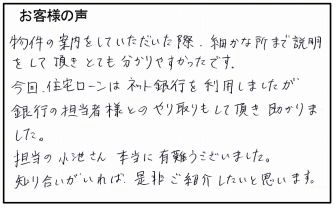 お客様の声
物件の案内をしていただいた際、細かな所まで説明
をして頂きとても分かりやすかったです。
今回、住宅ローンはネット銀行を利用しましたが
銀行の担当者様とのやり取りもして頂き助かりま
した。
担当の小池さん 本当に有難うございました。
知り合いがいれば、是非ご紹介したいと思います。